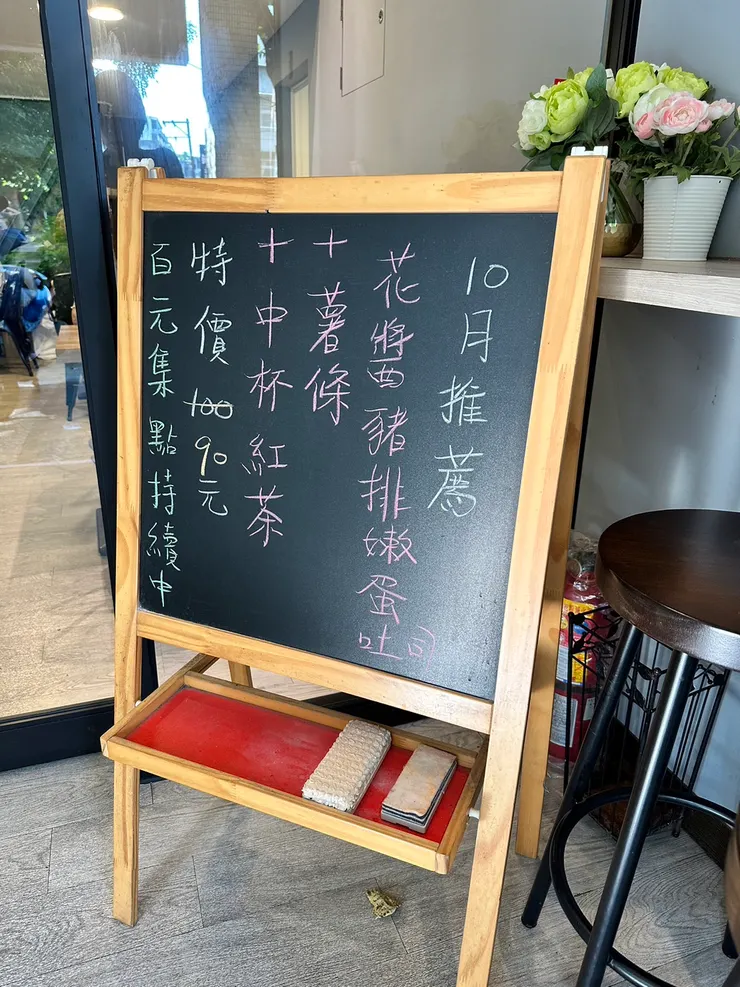 10月推薦
花醬豬排嫩蛋吐司
+薯條
+中杯紅茶
特價 100 90元
百元集點持續中